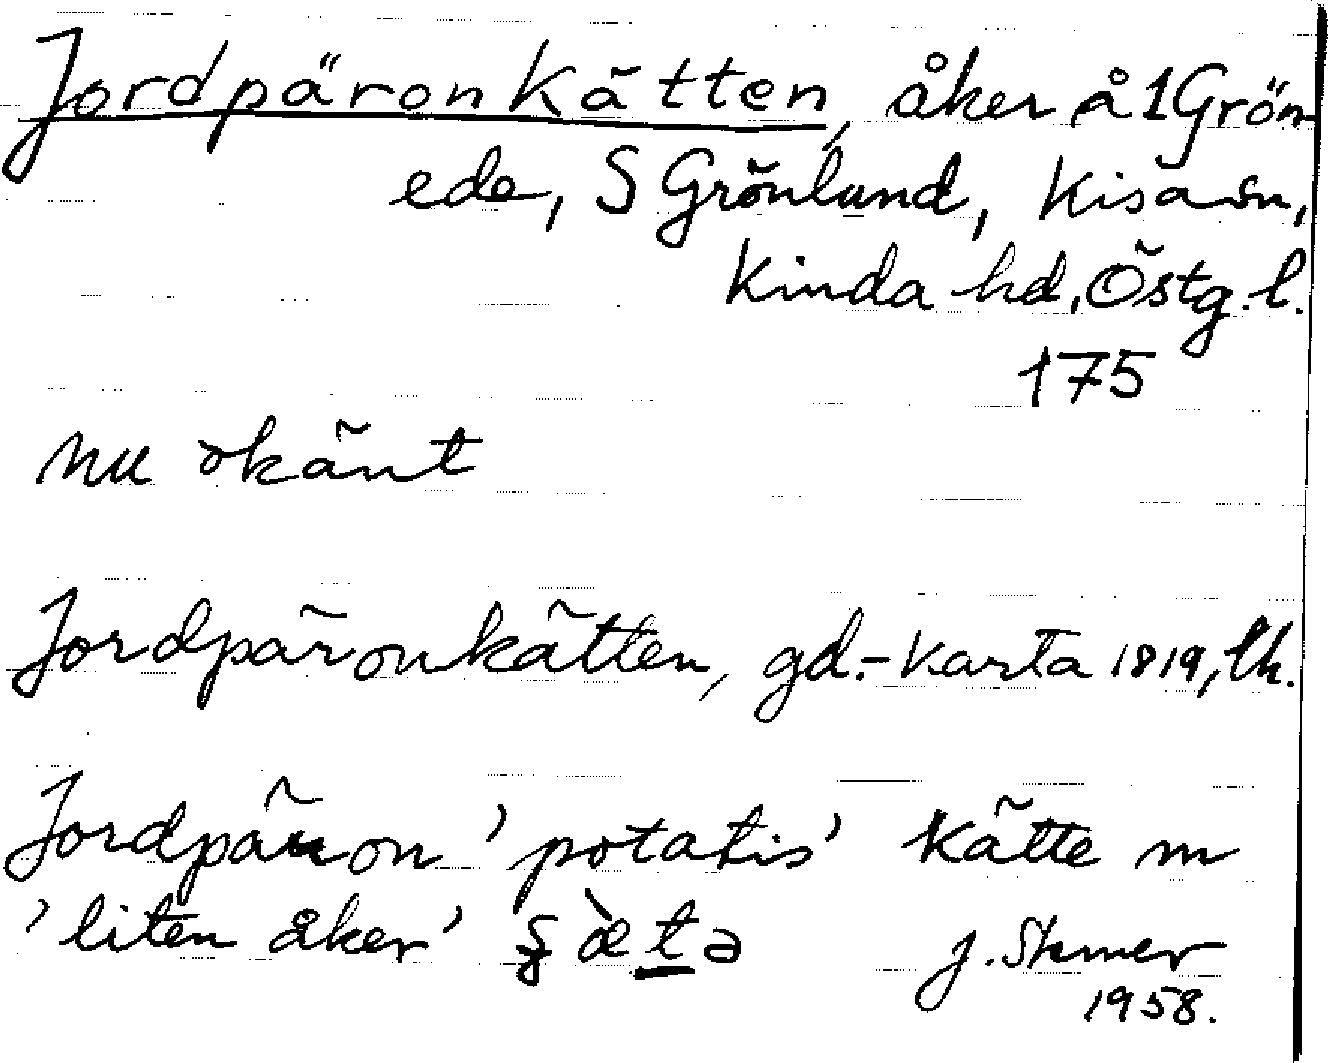 Jordpäronkätten, åker å 1 Grön-
ede, S Grönlund, Kisa sn,
Kinda hd, Östg. l.
175
nu okänt
Jordpäronkätten, gd.-karta 1819, lk.
Jordpäron 'potatis' Kätte m
'liten åker'
1958.